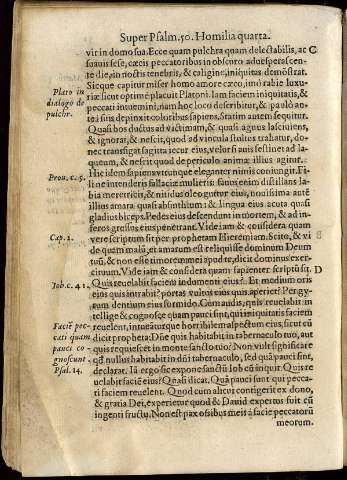 Super Psalm. 50. Homilia quarta.
vir in domo sua. Ecce quam pulchra quam delectabilis, ac C
suauis sese, cæcis peccatoribus in obscuro aduesperascen-
te die, in noctis tenebris, & caligine, iniquitas demõstrat.
Sicque capitur miser homo amore cæco, imò rabie luxu-
Plato in
dialogo de
pulchr.
riæ: sicut optimè placuit Platoni. Iam faciem iniquitatis, &
peccati inuenimus, nam hoc loco describitur, & paulò an-
tea suis depinxit coloribus sapiens. Statim autem sequitur.
Quasi bos ductus ad victimam, & quasi agnus lasciuiens,
& ignorat, & nescit, quod ad vincula stultus trahatur, do-
nec transfigat sagitta iecur eius, velut si auis festinet ad la-
queum, & nescit quod de periculo animæ illius agitur.
Prou. c. 5.
Hic idem sapiens vtrunque eleganter nimis coniungit. Fi-
li ne intenderis fallaciæ mulieris: fauus enim distillans la-
bia meretricis, & nitidius oleo guttur eius, nouissima autẽ
illius amara quasi absinthium: & lingua eius acuta quasi
gladius biceps. Pedes eius descendunt in mortem, & ad in-
feros gressus eius penetrant. Vide iam & considera quam
Cap. 2.
verè scriptum sit per prophetam Hieremiam. Scito, & vi
de quam malũ, et amarum est reliquisse dominum Deum
tuũ, & non esse timorem mei apud te, dicit dominus exer-
cituum. Vide iam & considera quàm sapienter scriptũ sit. D
Iob. c. 41.
Quis reuelabit faciem indumenti eius? Et medium oris
eius quis intrabit? portas vultus eius quis aperiet? Per gy-
rum dentium eius formido. Gaudio, quis reuelabit in-
tellige & cognosce quam pauci sunt, qui iniquitatis faciem
Faciẽ pec-
cati quam
pauci co-
gnoscunt.
Psal. 14.
reuelent, intueanturque horribilem aspectum eius, sicut cũ
dicit propheta: Dñe quis habitabit in tabernaculo tuo, aut
quis requiescet in monte sancto tuo? Non vult significare
qd. nullus habitabit in dñi tabernaculo, sed quã pauci sint,
declarat. Iã ergo sic expone sanctũ Iob cũ inquit. Quis re-
uelabit faciẽ eius? Quasi dicat. Quã pauci sunt qui pecca-
ti faciem reuelent. Quod cum altcui contigerit ex dono,
& gratia Dei, experietur quod & Dauid expertus fuit cũ
ingenti fructu. Non est pax ossibus meis à facie peccatorũ
meorum.